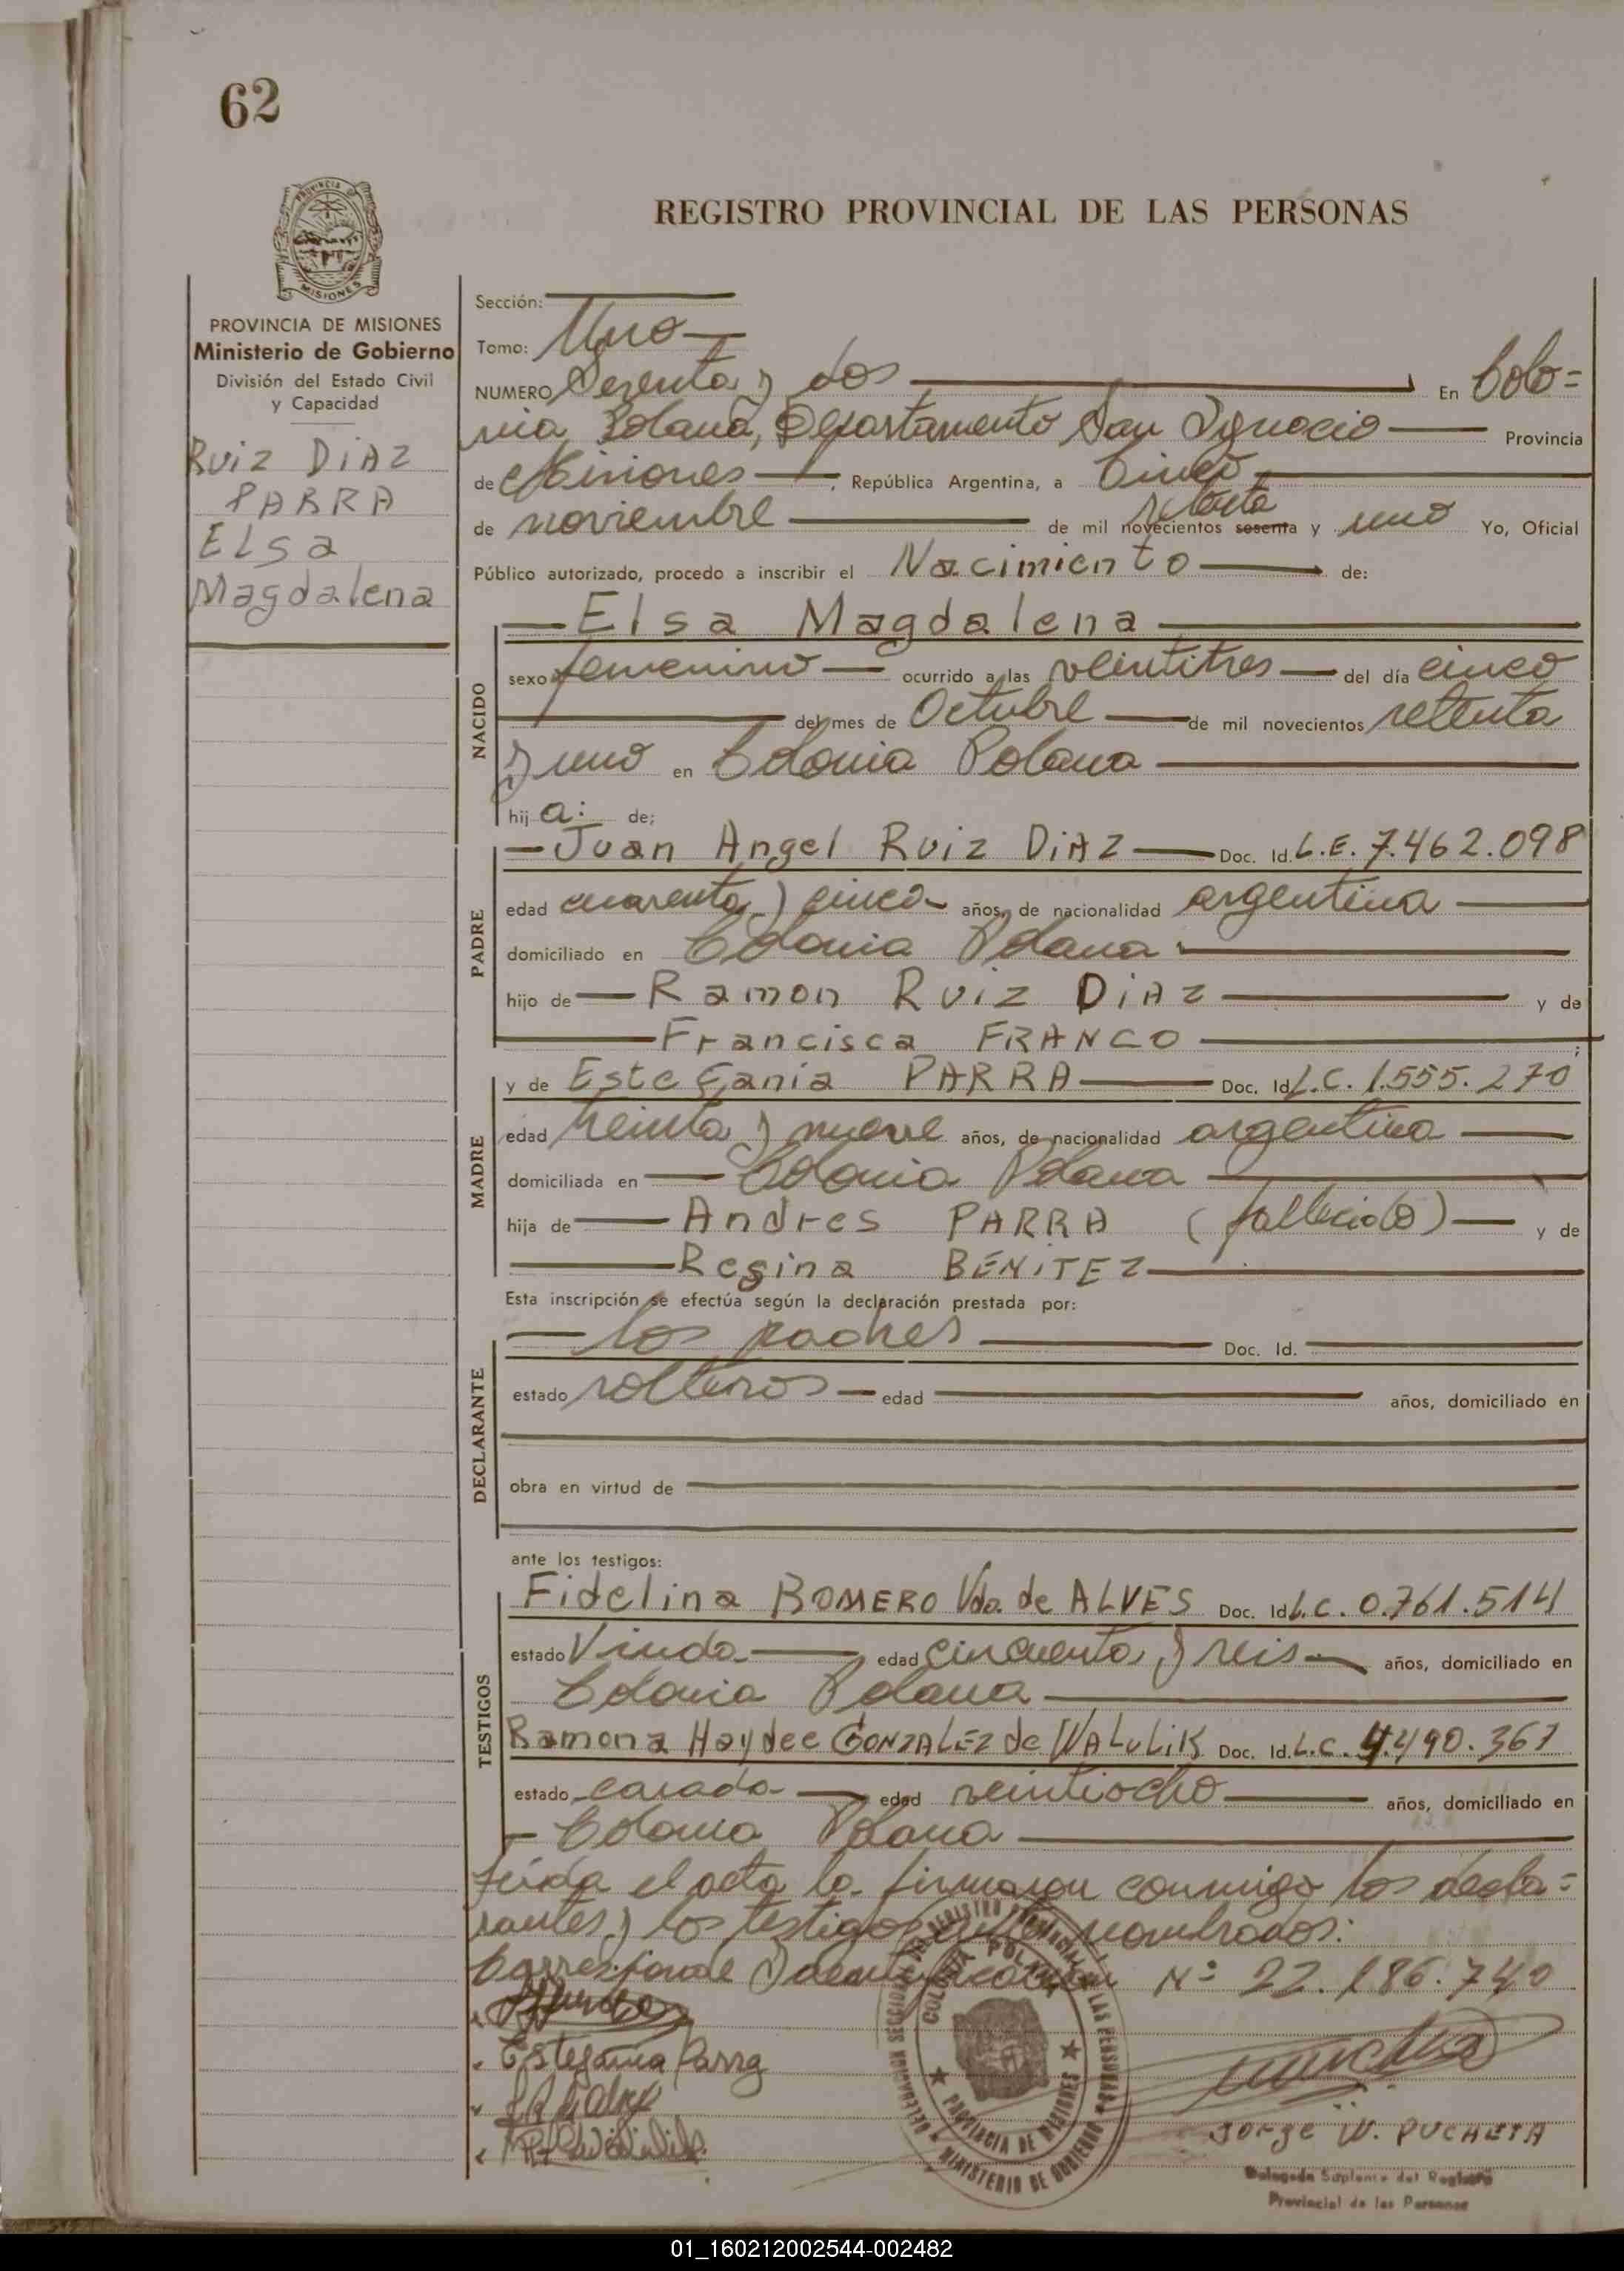 62
PROVINCIA DE
MISIONES
REGISTRO PROVINCIAL DE LAS PERSONAS
PROVINCIA DE MISIONES
Ministerio de Gobierno
División del Estado Civil
y Capacidad
Ruiz DiAz
PARRA
Elsa
Magdalena
Sección:
Tomo: Uno
NUMERO Sesenta y dos En Colo=
nia Polana, Departamento San Ignacio Provincia
de Misiones, República Argentina, a Cinco
setenta
de noviembre de mil novecientos sesenta y uno Yo, Oficial
Público autorizado, procedo a inscribir el Nacimiento de:
Elsa Magdalena
NACIDO
sexo femenino ocurrido a las veintitres del día cinco
del mes de Octubre de mil novecientos setenta
y uno en Colonia Polana
hij a: de;
PADRE
Juan Angel Ruiz DiAz Doc. Id. L.E. 7.462.098
edad cuarenta y cinco años, de nacionalidad argentina
domiciliado en Colonia Polana
hijo de Ramon Ruiz DiAz y de
Francisca FRANCO ;
MADRE
y de Estefania PARRA Doc. Id L.C. 1.555.270
edad treinta y nueve años, de nacionalidad argentina
domiciliada en Colonia Polana
hija de Andres PARRA (fallecido) y de
Regina BENiTEZ
Esta inscripción se efectúa según la declaración prestada por:
DECLARANTE
los padres Doc. Id.
estado solteros edad años, domiciliado en
obra en virtud de
ante los testigos:
TESTIGOS
Fidelina ROMERO Vda. de ALVES Doc. Id L.C. 0.761.514
estado Viuda edad cincuenta y seis años, domiciliado en
Colonia Polana
Ramona Haydee GONZALEZ de WALULiK Doc. Id. L.C. 4.490.367
estado casada edad veintiocho años, domiciliado en
Colonia Polana
Leida el acta la firmaron conmigo los decla=
rantes y los testigos nombrados:
Corresponde Identificación Nº 22.186.740
Estefania Parra
COLONIA POLANA
PROVINCIA DE MISIONES
MINISTERIO DE GOBIERNO
Jorge W. PUCHETA
Delegado Suplente del Registro
Provincial de las Personas
01_160212002544-002482